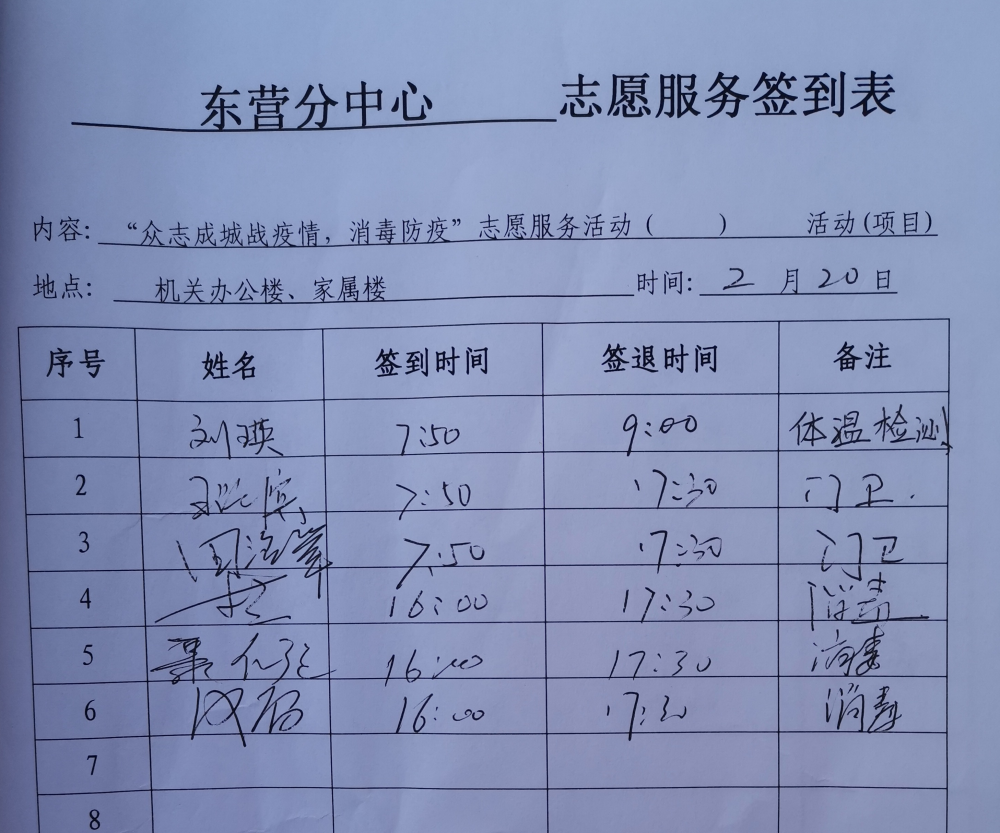 东营分中心 志愿服务签到表
内容: “众志成城战疫情，消毒防疫”志愿服务活动（ ） 活动(项目)
地点: 机关办公楼、家属楼 时间: 2 月 20 日
序号 姓名 签到时间 签退时间 备注
1 刘瑛 7:50 9:00 体温检测
2 7:50 17:30 门卫.
3 7:50 17:30 门卫
4 16:00 17:30 消毒
5 16:00 17:30 消毒
6 16:00 17:30 消毒
7
8